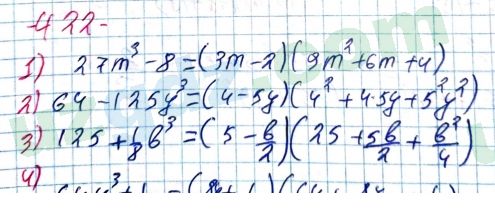 422-
1) 27m³-8=(3m-2)(9m²+6m+4)
2) 64-125y³=(4-5y)(4²+4·5y+5²y²)
3) 125+1/8 b³=(5-b/2)(25+5b/2+b²/4)
4)